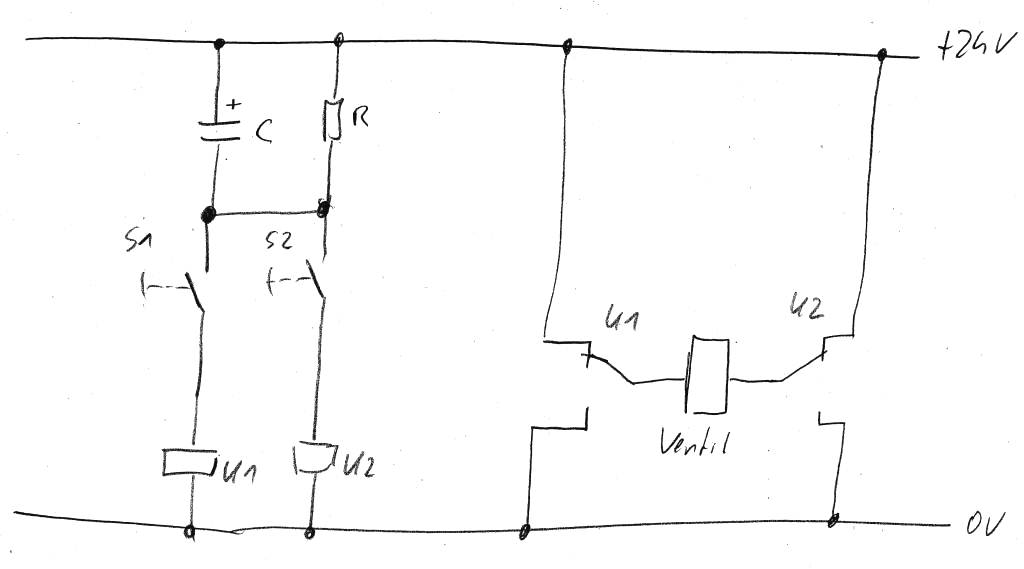 +24V
+
C
R
S1
S2
K1
K2
K1
K2
Ventil
0V